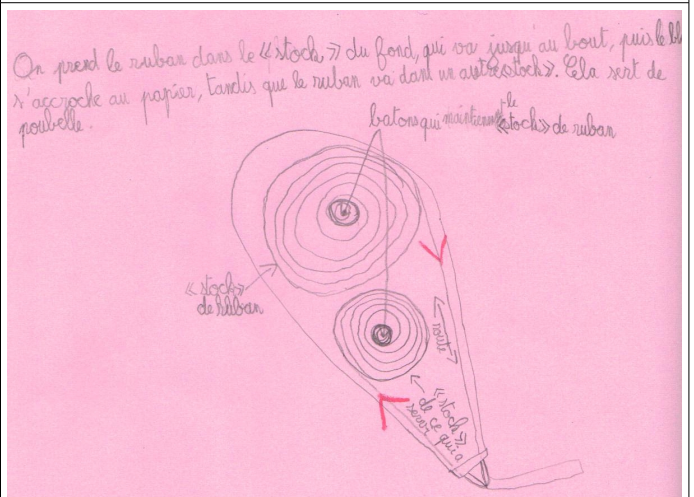 On prend le ruban dans le «stock» du fond, qui va jusqu'au bout, puis le bl
s'accroche au papier, tandis que le ruban va dans un autre «stock». Cela sert de
poubelle.
batons qui maintiennent le
«stock» de ruban
«stock»
de ruban
route
«stock»
de ce qui a
servi